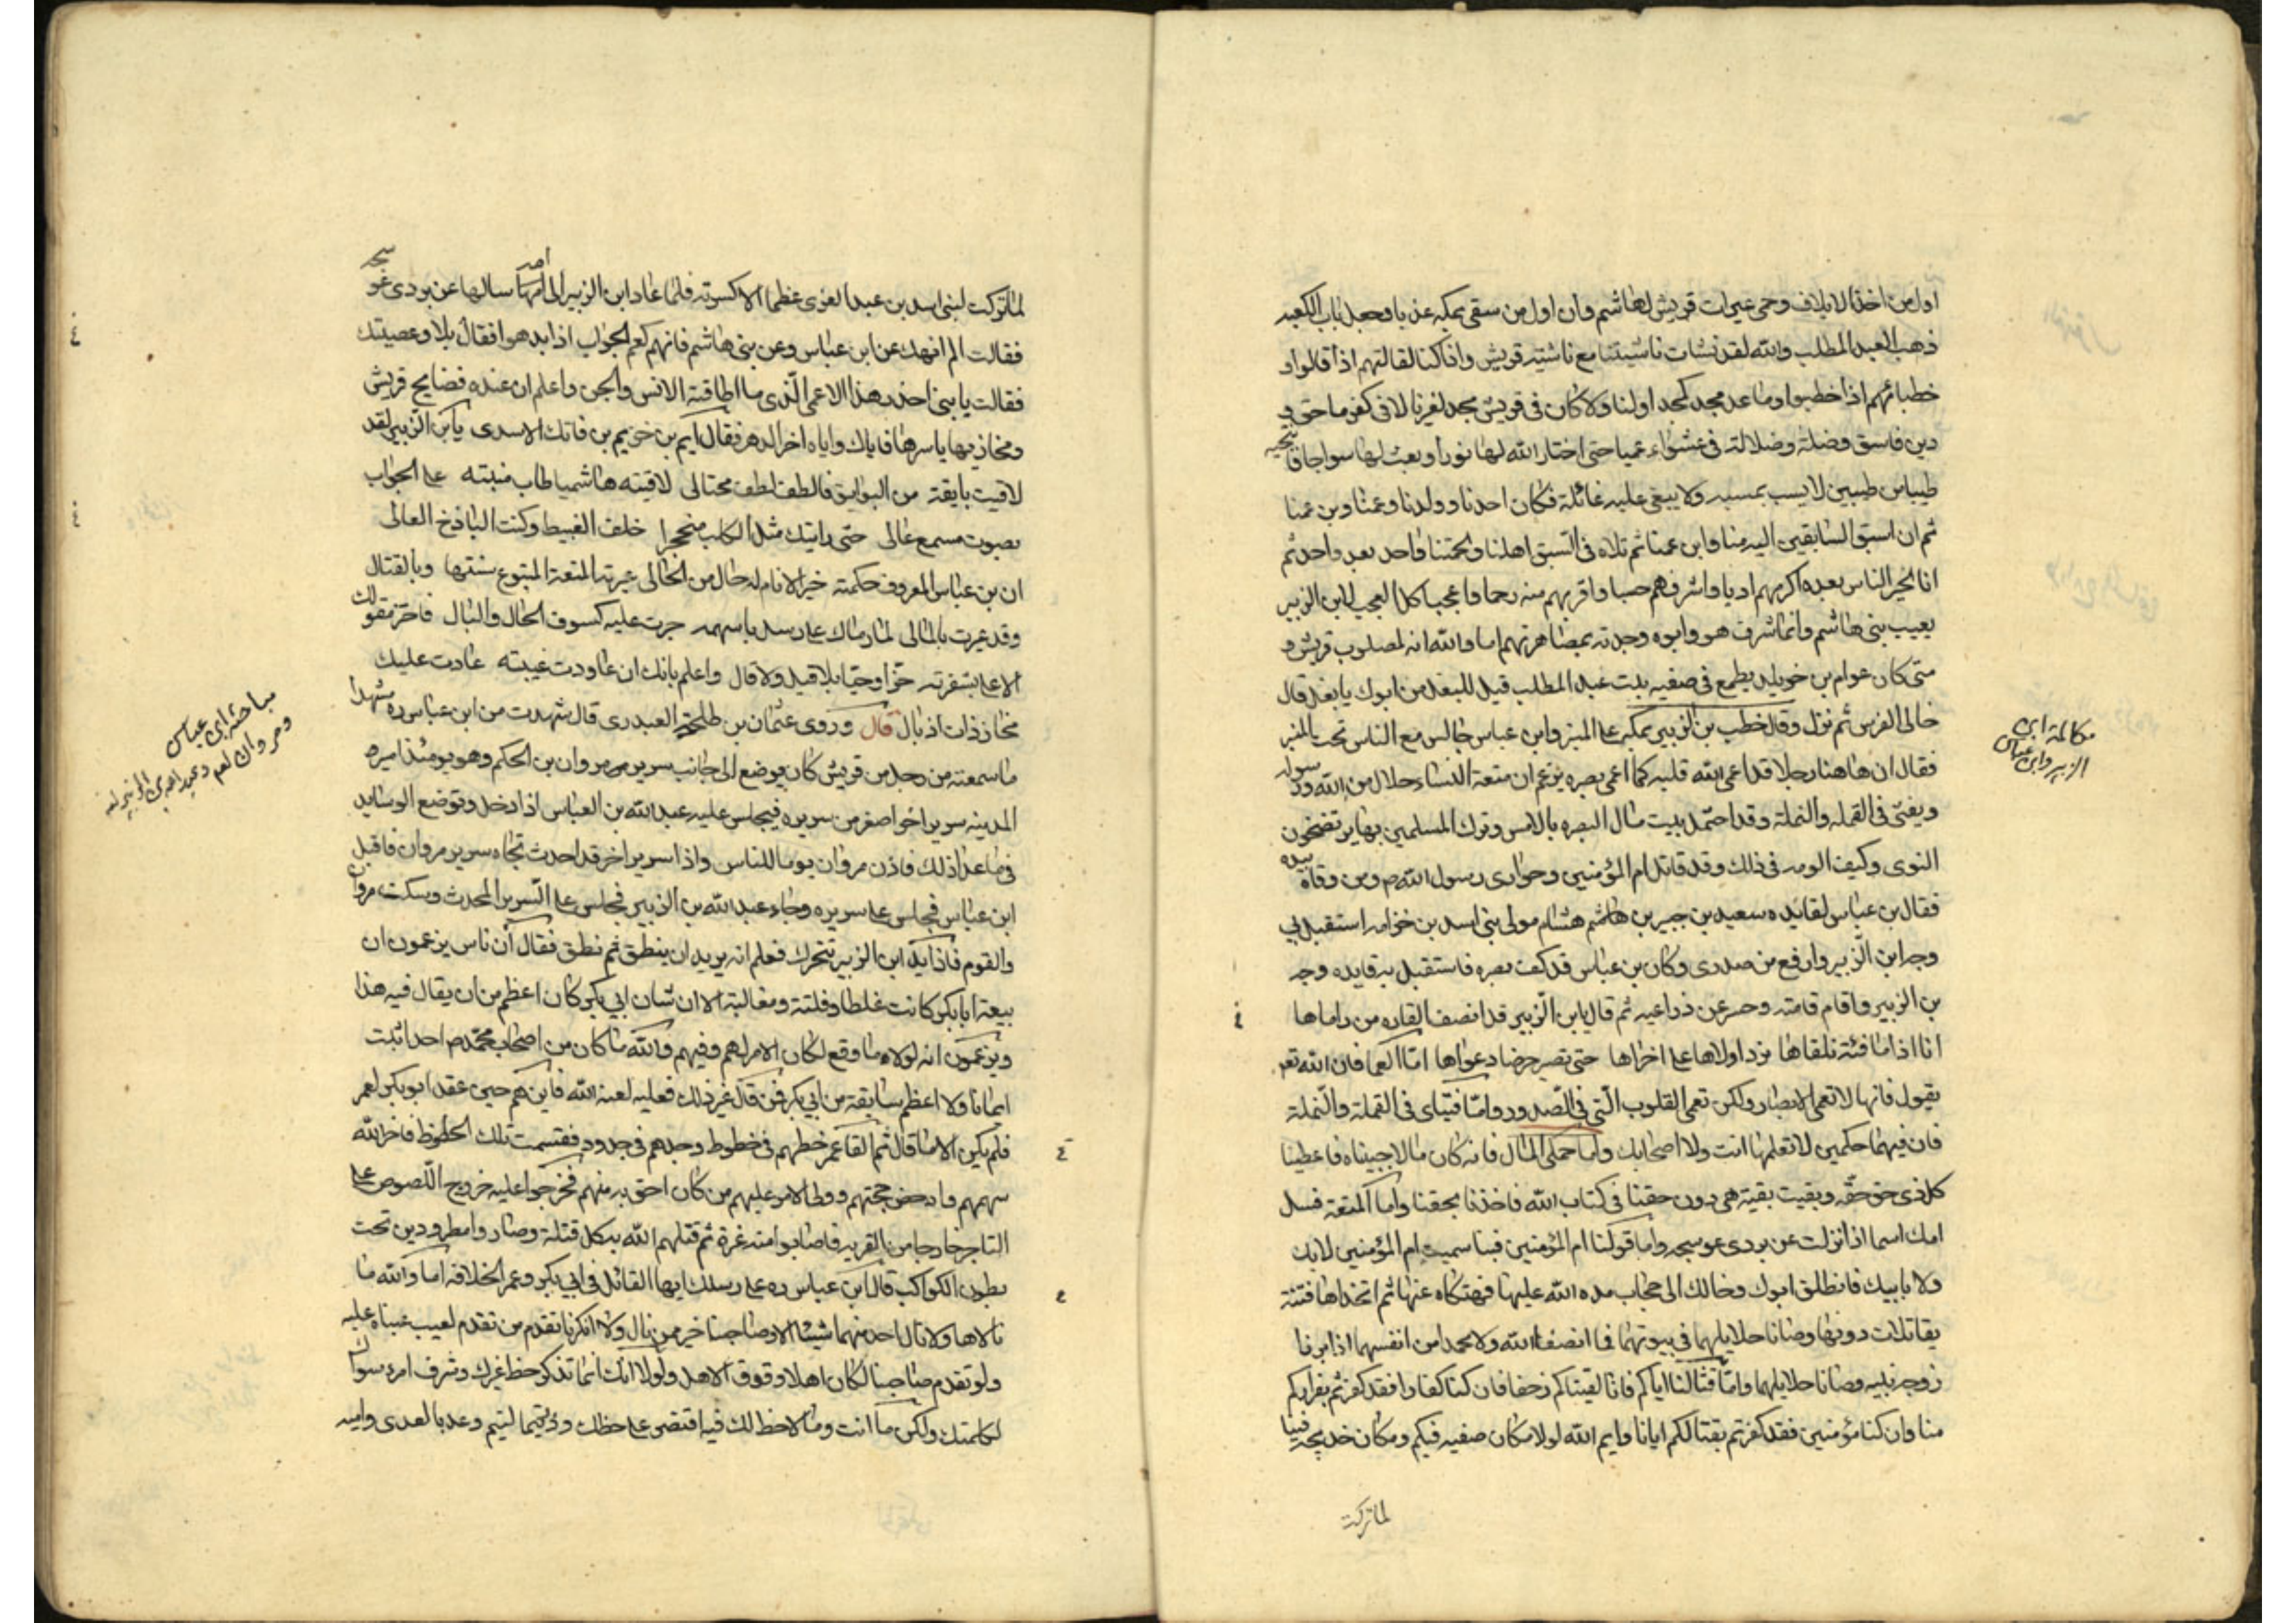 اول من اخذ الايلاف وحمى عيرات قريش لهاشم وان اول من سقى بمكة عذبا وجعل باب الكعبه
ذهب العبد المطلب والله لقد نشات ناشيتنا مع ناشيته قريش وانا كنا لقالتهم اذا قالوا و
خطبائهم اذا خطبوا وما عد مجد كمجد اولنا ولا كان في قريش مجد لغيرنا لا في كفر ماحق و
دين فاسق وضلة وضلالة في عشواء عميا حتى اختار الله لها نورا وبعث لها سراجا
طيبا من طيبين لا يسب بمسبه ولا يبغى عليه غائلة فكان احدنا وولدنا وعمنا وبن عمنا
ثم ان اسبق السابقين اليه منا وابن عمنا ثم تلاه في السبق اهلنا ولحمتنا واحد بعد واحد ثم
انا لخير الناس بعده اكرمهم ادبا واشرفهم حسبا واقربهم منه رحما واعجبا كل العجب لابن الزبير
يعيب بني هاشم وانما شرف هو وابوه وجدته بمصاهرتهم اما والله انه لمصلوب قريش و
متى كان عوام بن خويلد يطمع في صفيه بنت عبد المطلب قيل للبغل من ابوك يا بغل قال
خالى الفرس ثم نزل وقد خطب بن الزبير بمكه على المنبر وابن عباس جالس مع الناس تحت المنبر
مكالمة ابن
الزبير وابن عباس
فقال ان هاهنا رجلا قد اعمى الله قلبه كما اعمى بصره يزعم ان متعة النساء حلال من الله ورسوله
ويفتى في القمله والنملة وقد احتمل بيت مال البصره بالامس وترك المسلمين بها يرتضخون
النوى وكيف الومه في ذلك وقد قاتل ام المؤمنين وحوارى رسول الله ص ومن وقاه بيده
فقال بن عباس لقائده سعيد بن جبير بن هاشم هشام مولى بني اسد بن خزامه استقبل بي
وجه ابن الزبير وارفع من صدرى وكان بن عباس قد كف بصره فاستقبل به قايده وجه
بن الزبير واقام قامته وحسر عن ذراعيه ثم قال يابن الزبير قد انصف القاره من راماها
انا اذا ما فئة نلقاها نرد اولاها على اخراها حتى تصير حرضا دعواها اما العما فان الله تعه
يقول فانها لا تعمى الابصار ولكن تعمى القلوب التي في الصدور واما فتياى في القملة والنملة
فان فيهما حكمين لا تعلمها انت ولا اصحابك واما حملى المال فانه كان مالا جبيناه فاعطينا
كل ذى حق حقه وبقيت بقية هي دون حقنا في كتاب الله فاخذنا بحقنا واما المتعة فسل
امك اسما اذا نزلت عن بردى عوسجه واما قولنا ام المؤمنين فبنا سميت ام المؤمنين لا بك
ولا بابيك فانطلق ابوك وخالك الى حجاب مده الله عليها فهتكاه عنها ثم اتخذاها فتنة
يقاتلات دونها وصانا حلايلهما في بيوتهما فما انصفا الله ولا محمدا من انفسهما اذ ابرفا
زوجه نبيه وصانا حلايلهما واما قتالنا اياكم فانا لقيناكم زحفا فان كنا كفارا فقد كفرتم بفراركم
منا وان كنا مؤمنين فقد كفرتم بقتالكم ايانا وايم الله لولا مكان صفيه فيكم ومكان خديجه فينا
لما تركت
لما تركت لبني اسد بن عبد العزى عظما الا كسرته فلما عاد ابن الزبير الى امه سالها عن بردى عوسجه
فقالت الم انهك عن ابن عباس وعن بني هاشم فانهم كعم الجواب اذا بدهوا فقال بلا وعصيتك
فقالت يا بني احذر هذا الاعمى الذى ما اطاقته الانس والجن واعلم ان عنده فضايح قريش
ومخازيها باسرها فاياك واياه اخر الدهر فقال ايم بن خريم بن فاتك الاسدى يابن الزبير لقد
لاقيت بايقة من البوايق فالطف لطف محتالى لاقيته هاشميا طاب منبته على الجواب
بصوت مسمع عالى حتى رايتك مثل الكلب منحجرا خلف الغبيط وكنت الباذخ العالى
ان بن عباس المعروف حكمته خير الانام له حال من الحالى عيرته المتعة المتبوع سنتها وبالقتال
وقد عيرت بالمالى لما رماك على رسل باسهمه جرت عليه كسوف الحال والبال فاحتز مقولك
الاعلا بشفرته حزا وحيا بلا قيل ولا قال واعلم بانك ان عاودت غيبته عادت عليك
مخاز ذات اذبال قال وروى عثمان بن طلحة العبدرى قال شهدت من ابن عباس ره مشهدا
مباحثه ابن عباس
ومروان لعم وعبد الله بن الزبير له
ما سمعته من رجل من قريش كان يوضع الى جانب سرير مروان بن الحكم وهو يومئذ اميره
المدينه سريرا اخر اصغر من سريره فيجلس عليه عبد الله بن العباس اذا دخل وتوضع الوسايد
فيما عدا ذلك فاذن مروان يوما للناس واذا سرير اخر قد احدث تجاه سرير مروان فاقبل
ابن عباس فجلس على سريره وجاء عبد الله بن الزبير فجلس على السرير المحدث وسكت مروان
والقوم فاذا يد ابن الزبير تتحرك فعلم انه يريد ان ينطق ثم نطق فقال ان ناس يزعمون ان
بيعة ابابكر كانت غلطا وفلتة ومغالبة الا ان شان ابي بكر كان اعظم من ان يقال فيه هذا
ويزعمون انه لولاه ما وقع لكان الامر لهم وفيهم والله ما كان من اصحاب محمد ص احد اثبت
ايمانا ولا اعظم سابقة من ابي بكر فمن قال غير ذلك فعليه لعنة الله فاين هم حين عقد ابو بكر لعمر
فلم يكن الا ما قال ثم القا عمر خطهم في خطوط وجدهم في جدود فقسمت تلك الحظوظ فاخر الله
سهمهم وادحض حجتهم وولا الامر عليهم من كان احق به منهم فخرجوا عليه خروج اللصوص على
التاجر خارجا من القريه فاصابوا منه غرة ثم قتلهم الله بكل قتلة وصاروا مطرودين تحت
بطون الكواكب قال ابن عباس ره على رسلك ايها القائل في ابي بكر وعمر الخلافه اما والله ما
نالاها ولا نال احد منهما شيئا الا وصاحبنا خير ممن نال ولا انكرنا تقدم من تقدم لعيب عبناه عليه
ولو تقدم صاحبنا لكان اهلا وفوق الاهل ولولا انك انما تذكر حظ غيرك وشرف امرء سواك
لكلمتك ولكن ما انت وما لاحظ لك فيه اقتصى على حظك ودع تيما لتيم وعديا لعدى واميه